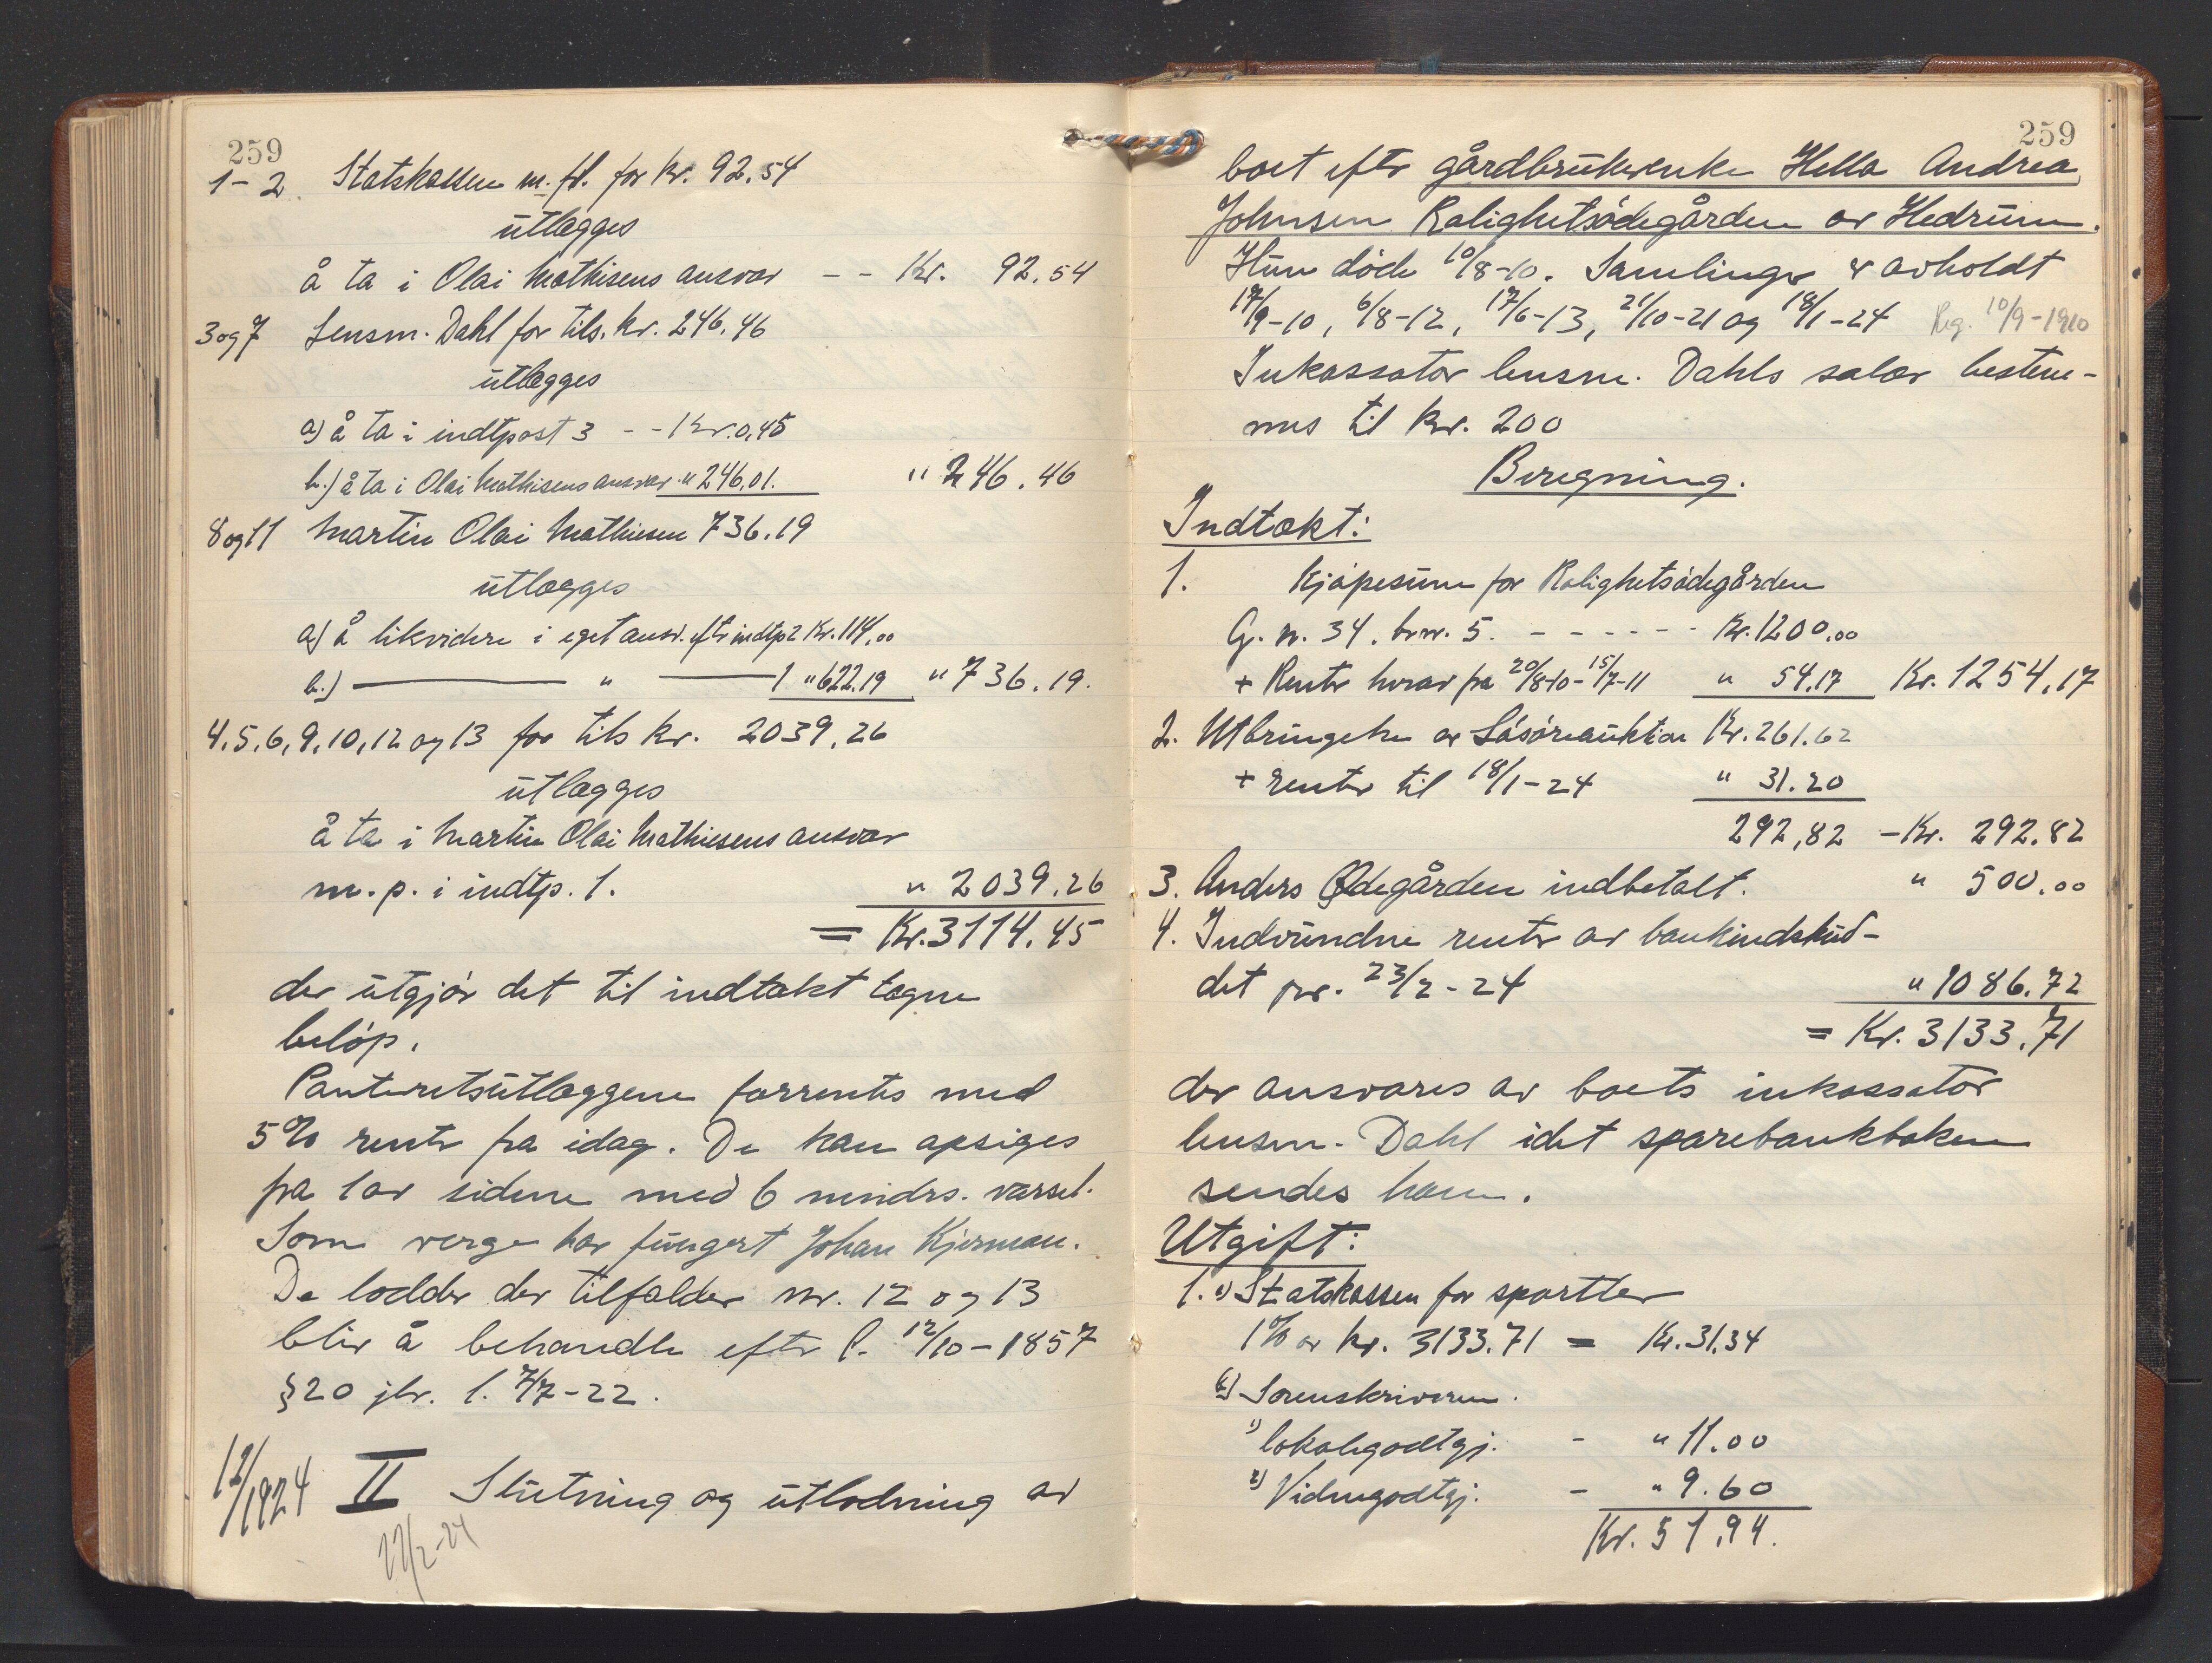 259
1-2 Statskassen m. fl. for kr. 92.54
utlægges
å ta i Olai Mathisens ansvar -- Kr. 92.54
3 og 7 Lensm. Dahl for tils. kr. 246.46
utlægges
a) å ta i indtpost 3 -- Kr. 0,45
b.) å ta i Olai Mathisens ansvar " 246,01. " 246.46
8 og 11 Martin Olai Mathisen 736.19
utlægges
a) å likvidere i eget ansv. eftr indtp 2 Kr. 114,00
b.) — " — 1 " 622.19 " 736.19.
4,5,6,9,10,12 og 13 for tils kr. 2039,26
utlægges
å ta i Martin Olai Mathiesens ansvar
m. p. i indtp. 1. " 2039.26
= Kr. 3114.45
der utgjør det til indtækt tagne
beløp.
Panteretsutlæggene forrentes med
5% rente fra idag. De kan opsiges
fra 1 av sidene med 6 mndrs. varsel.
Som verge har fungert Johan Kjerman.
De lodder der tilfalder nr. 12 og 13
blir å behandle eftr l. 12/10-1857
§20 jfr. l. 7/7-22.
12/1924 II Slutning og utlodning av
22/2-24
259
boet eftr gårdbrukerenke Hella Andrea
Johnsen Rolighetsødegården av Hedrum.
Hun døde 10/8-10. Samlinger er avholdt
17/9-10, 6/8-12, 17/6-13, 21/10-21 og 18/1-24 Reg. 10/9-1910
Inkassator lensm. Dahls salær bestem-
mes til kr. 200
Beregning.
Indtækt:
1. Kjøpesum for Rolighetsødegården
G. n. 34. brnr. 5. - - - - - - Kr. 1200.00
+ Renter herav fra 20/8-10 - 15/7-11 " 54.17 Kr. 1254,17
2. Utbringelse av Løsøreauktion Kr. 261.62
+ renter til 18/1-24 " 31.20
292,82 - Kr. 292.82
3. Anders Ødegården indbetalt. " 500.00
4. Indvundne renter av bankindskud-
det pr. 23/2-24 " 1086.72
= Kr. 3133.71
der ansvares av boets inkassator
lensm. Dahl idet sparebankboken
sendes ham.
Utgift:
1. a) Statskassen for sportler
1% av kr. 3133.71 = Kr. 31.34
b) Sorenskriveren.
1) lokalegodtgj. - " 11.00
2) Vidnegodtgj. - " 9.60
Kr. 51,94.